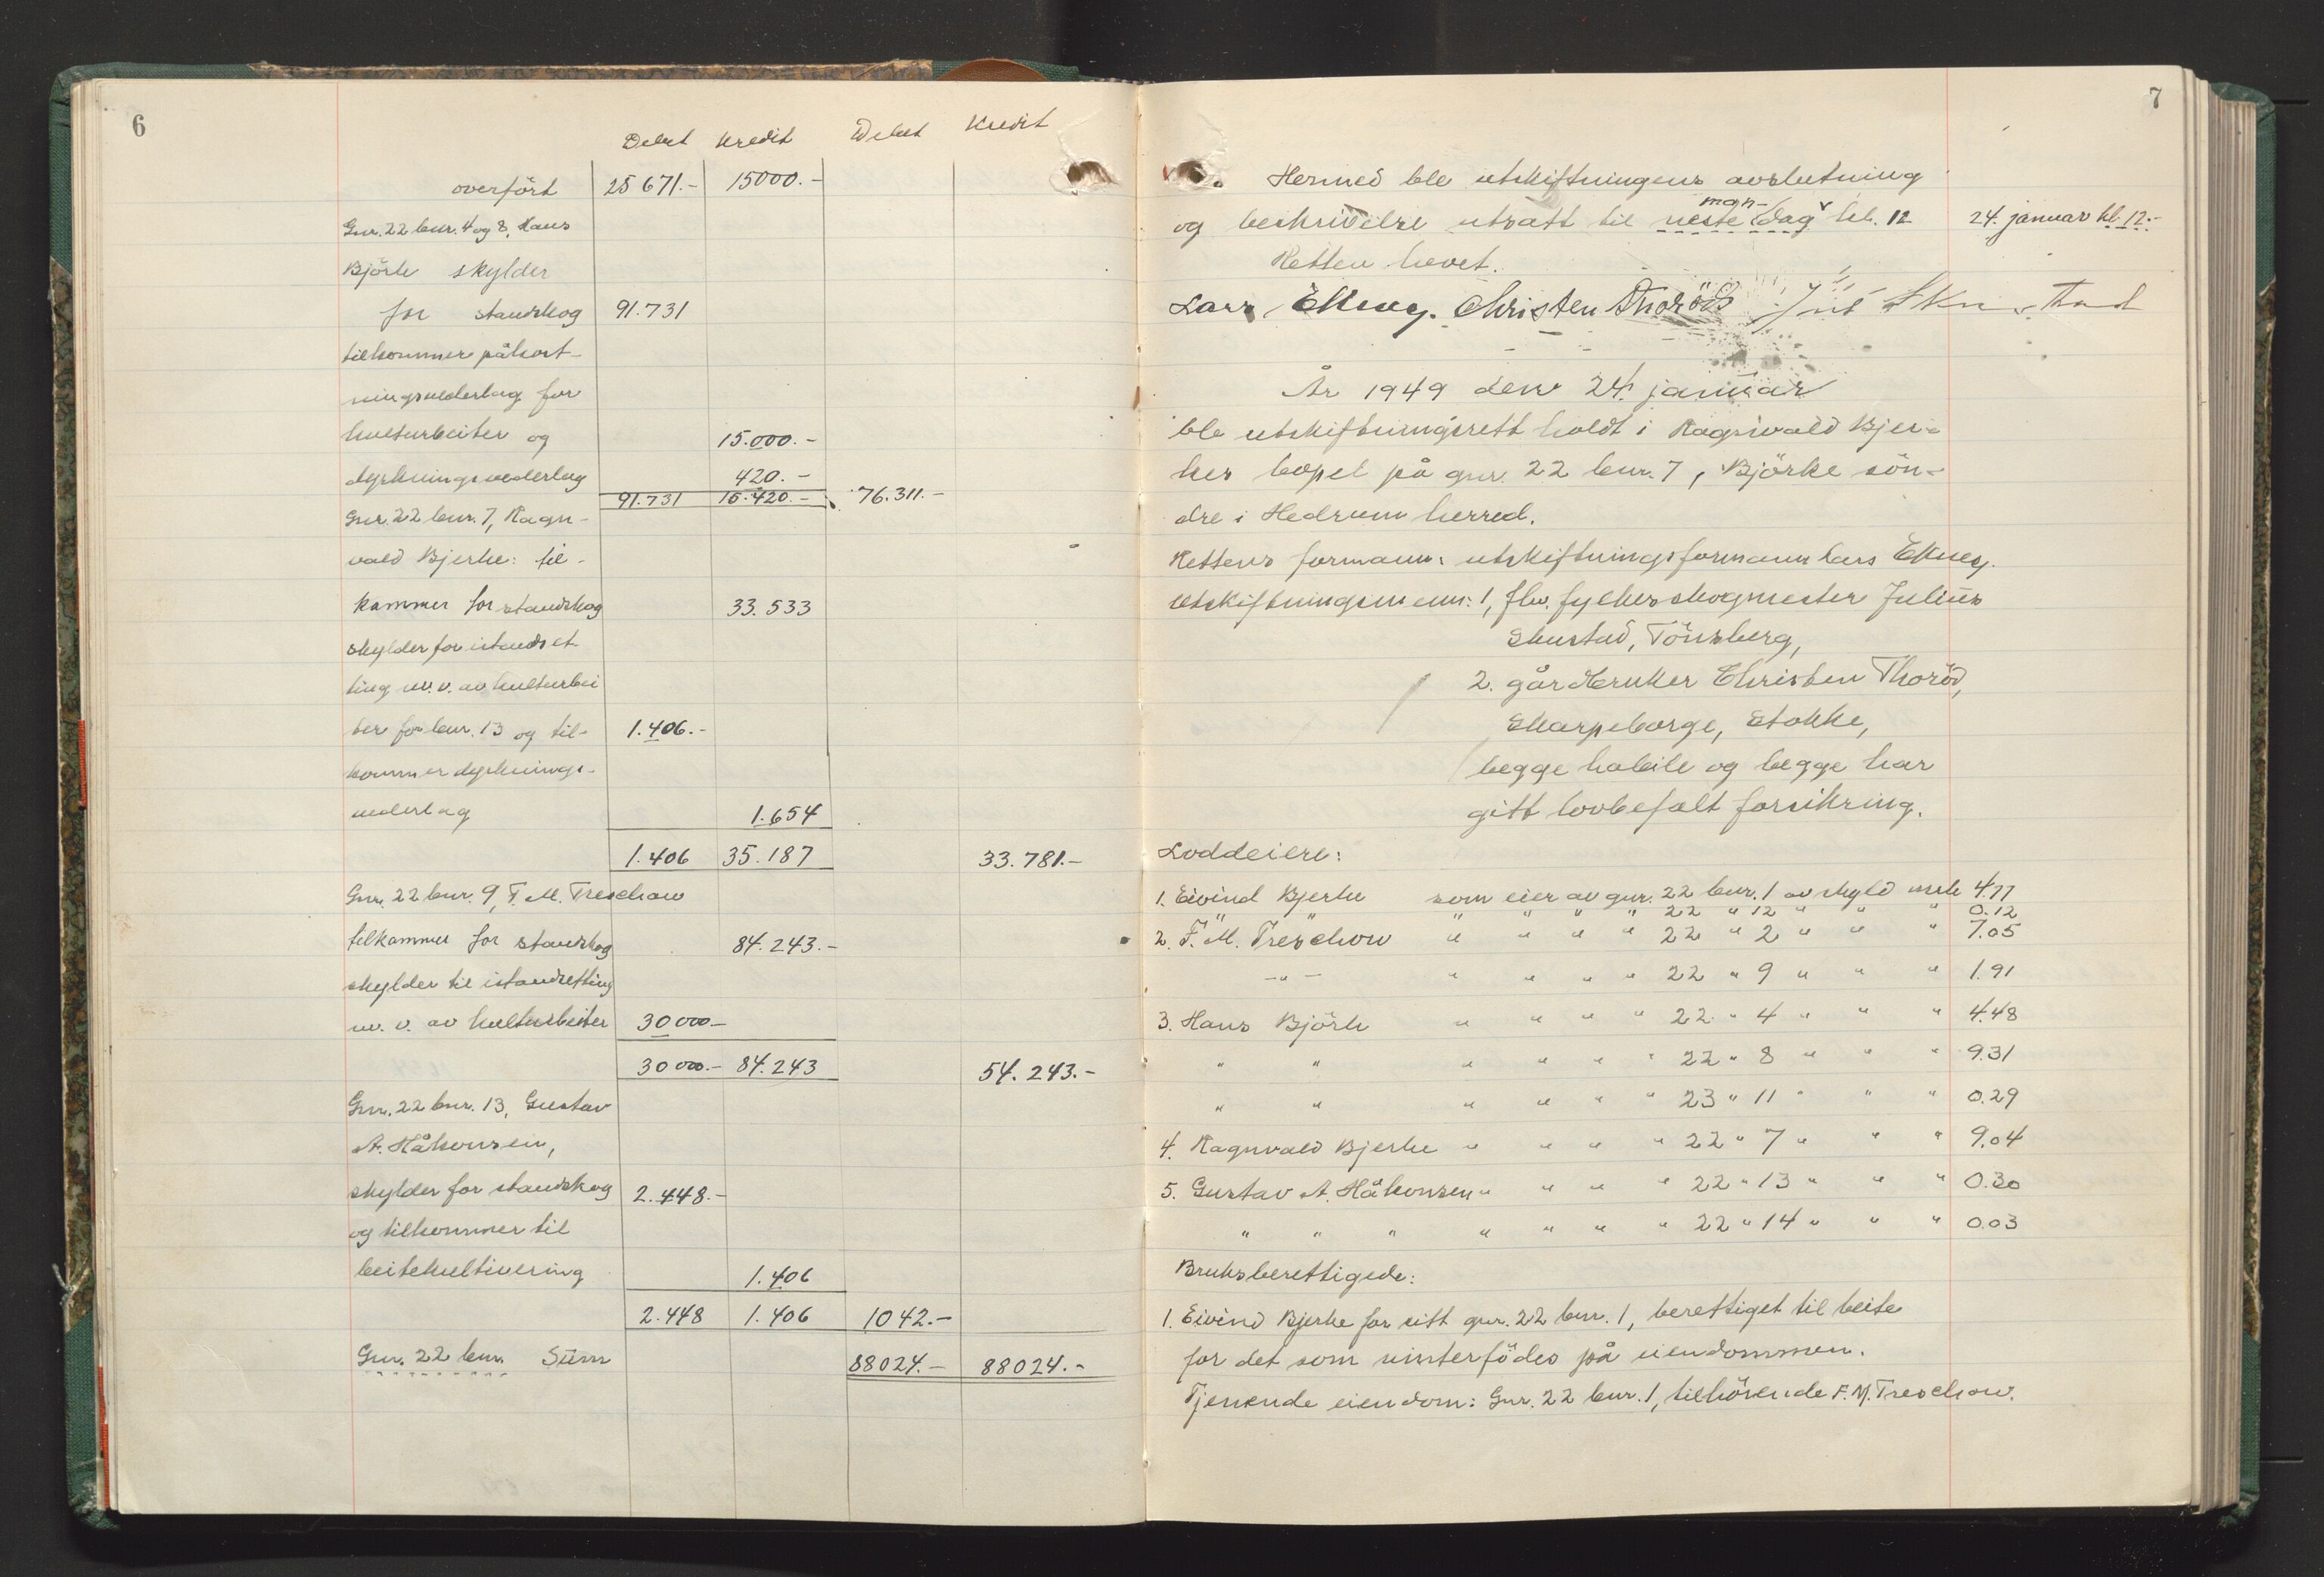 6
Debet Kredit Debet Kredit
overført 25 671.- 15000.-
Gnr. 22 bnr. 4 og 8, Hans
Björke skylder
for standskog 91.731
tilkommer påkost-
ningsvederlag for
kulturbeiter og 15.000.-
dyrkningsvederlag 420.-
91.731 15.420.- 76.311.-
Gnr. 22 bnr. 7, Ragn-
vald Bjerke: til-
kommer for standskog 33.533
skylder for istandset-
ting m.v. av kulturbei
ter for bnr. 13 og til- 1.406.-
kommer dyrknings-
vederlag 1.654
1.406 35.187 33.781.-
Gnr. 22 bnr. 9, F. M. Treschow
tilkommer for standskog 84.243.-
skylder til istandsetting
m.v. av kulturbeiter 30 000.-
30 000.- 84.243 54.243.-
Gnr. 22 bnr. 13, Gustav
A. Håkonsen,
skylder for standskog 2.448.-
og tilkommer til
beitekultivering 1.406
2.448 1.406 1042.-
Gnr. 22 bnr. Sum 88024.- 88024.-
7
Hermed ble utskiftningens avslutning
man-
og beskrivelse utsatt til neste dag kl. 12 24. januar kl. 12.-
Retten hevet.
Lars Elkney. Christen Thoröd
År 1949 den 24. januar
ble utskiftningsrett holdt i Ragnvald Bjer-
kes bopel på gnr. 22 bnr. 7, Björke sön-
dre i Hedrum herred.
Rettens formann: utskiftningsformann Lars Elkney.
Utskiftningsmenn: 1, fhv. fylkesskogmester Julius
Skustad, Tönsberg,
2. gårdbruker Christen Thoröd,
Skarpeborge, Stokke,
begge habile og begge har
gitt lovbefalt forsikring.
Loddeiere:
1. Eivind Bjerke som eier av gnr. 22 bnr. 1 av skyld mrk 4.77
" " " " " " 22 " 12 " " " 0.12
2. F. M. Treschow " " " " 22 " 2 " " " 7.05
-"- " " " " 22 " 9 " " " 1.91
3. Hans Björke " " " " 22 " 4 " " " 4.48
" " " " " " 22 " 8 " " " 9.31
" " " " " " 23 " 11 " " " 0.29
4. Ragnvald Bjerke " " " " 22 " 7 " " " 9.04
5. Gustav A. Håkonsen " " " " 22 " 13 " " " 0.30
" " " " " " " 22 " 14 " " " 0.03
Bruksberettigede:
1. Eivind Bjerke for sitt gnr. 22 bnr. 1, berettiget til beite
for det som vinterfödes på eiendommen.
Tjenende eiendom: Gnr. 22 bnr. 1, tilhörende F. M. Treschow.